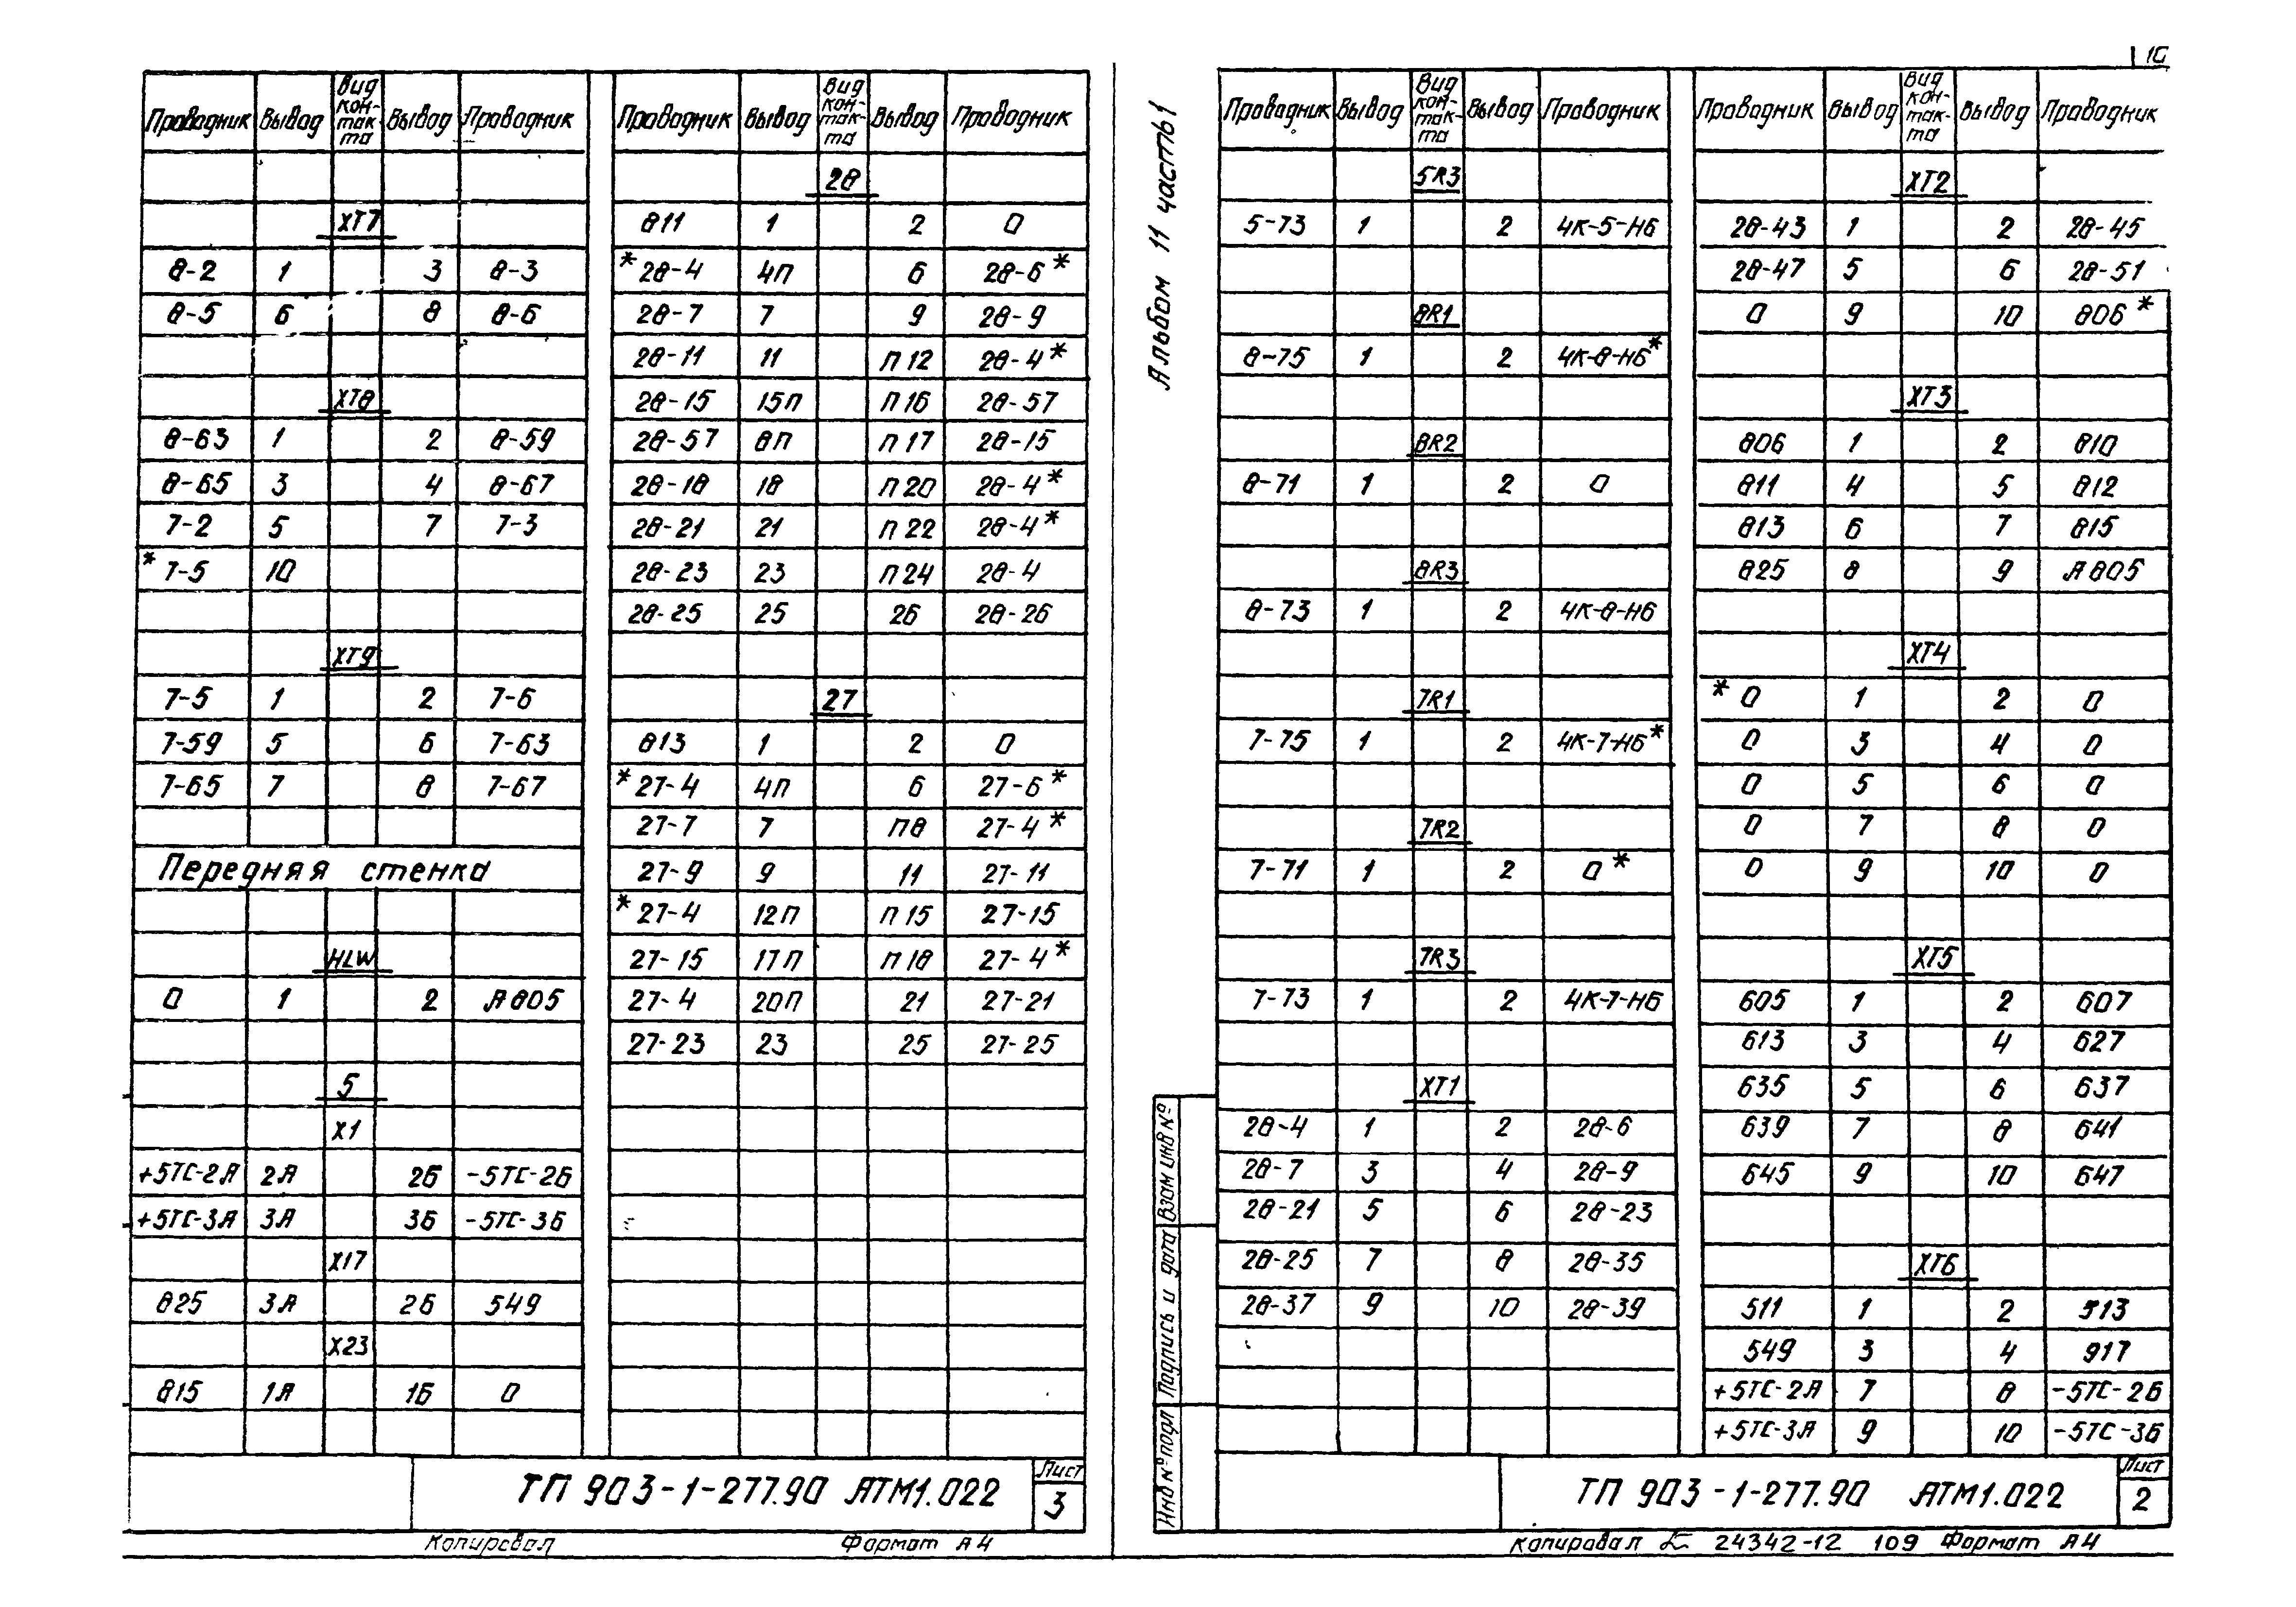 Проводник Вывод Вид контакта Вывод Проводник
XT7
8-2 1 3 8-3
8-5 6 8 8-6
XT8
8-63 1 2 8-59
8-65 3 4 8-67
7-2 5 7 7-3
* 7-5 10
XT9
7-5 1 2 7-6
7-59 5 6 7-63
7-65 7 8 7-67
Передняя стенка
HLW
0 1 2 А805
5
X1
+5TC-2А 2А 2Б -5TC-2Б
+5TC-3А 3А 3Б -5TC-3Б
X17
825 3А 2Б 549
X23
815 1А 1Б 0
Проводник Вывод Вид контакта Вывод Проводник
28
811 1 2 0
* 28-4 4П 6 28-6 *
28-7 7 9 28-9
28-11 11 П12 28-4 *
28-15 15П П16 28-57
28-57 8П П17 28-15
28-18 18 П20 28-4 *
28-21 21 П22 28-4 *
28-23 23 П24 28-4
28-25 25 26 28-26
27
813 1 2 0
* 27-4 4П 6 27-6 *
27-7 7 П8 27-4 *
27-9 9 11 27-11
* 27-4 12П П15 27-15
27-15 17П П18 27-4 *
27-4 20П 21 27-21
27-23 23 25 27-25
ТП 903-1-277.90 АТМ1.022
Лист
3
Копировал Формат А4
Альбом 11 часть 1
Проводник Вывод Вид контакта Вывод Проводник
5R3
5-73 1 2 4К-5-Н6
8R1
8-75 1 2 4К-8-Н6 *
8R2
8-71 1 2 0
8R3
8-73 1 2 4К-8-Н6
7R1
7-75 1 2 4К-7-Н6 *
7R2
7-71 1 2 0 *
7R3
7-73 1 2 4К-7-Н6
XT1
28-4 1 2 28-6
28-7 3 4 28-9
28-21 5 6 28-23
28-25 7 8 28-35
28-37 9 10 28-39
Проводник Вывод Вид контакта Вывод Проводник
XT2
28-43 1 2 28-45
28-47 5 6 28-51
0 9 10 806 *
XT3
806 1 2 810
811 4 5 812
813 6 7 815
825 8 9 А805
XT4
* 0 1 2 0
0 3 4 0
0 5 6 0
0 7 8 0
0 9 10 0
XT5
605 1 2 607
613 3 4 627
635 5 6 637
639 7 8 641
645 9 10 647
XT6
511 1 2 513
549 3 4 917
+5TC-2А 7 8 -5TC-2Б
+5TC-3А 9 10 -5TC-3Б
Взам инв №
Подпись и дата
Инв № подл
ТП 903-1-277.90 АТМ1.022
Лист
2
Копировал 24342-12 109 Формат А4